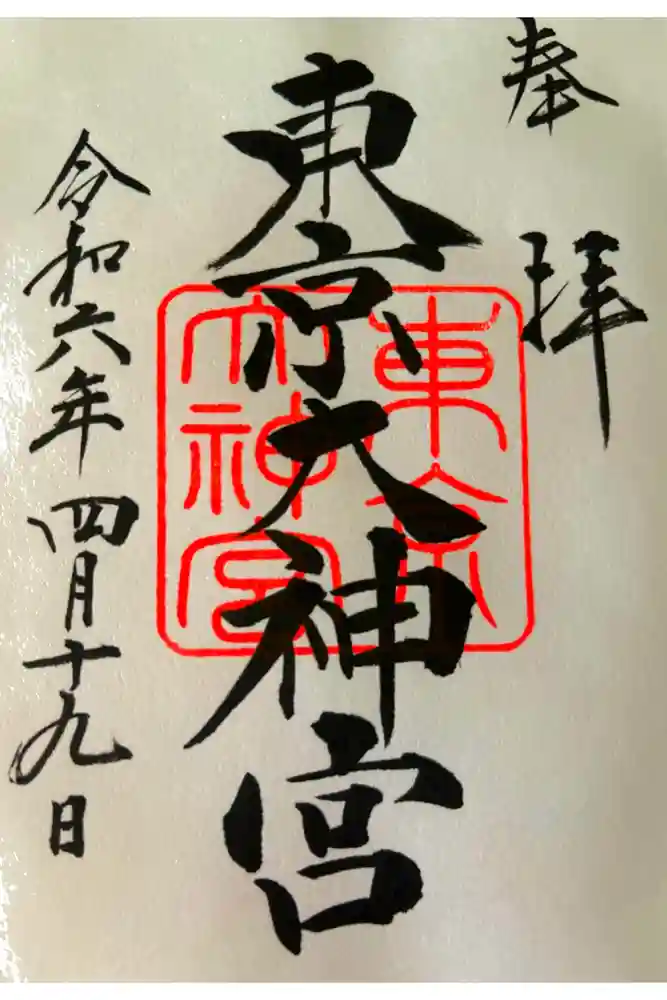 奉拝
東京大神宮
東京
大神宮
令和六年四月十九日